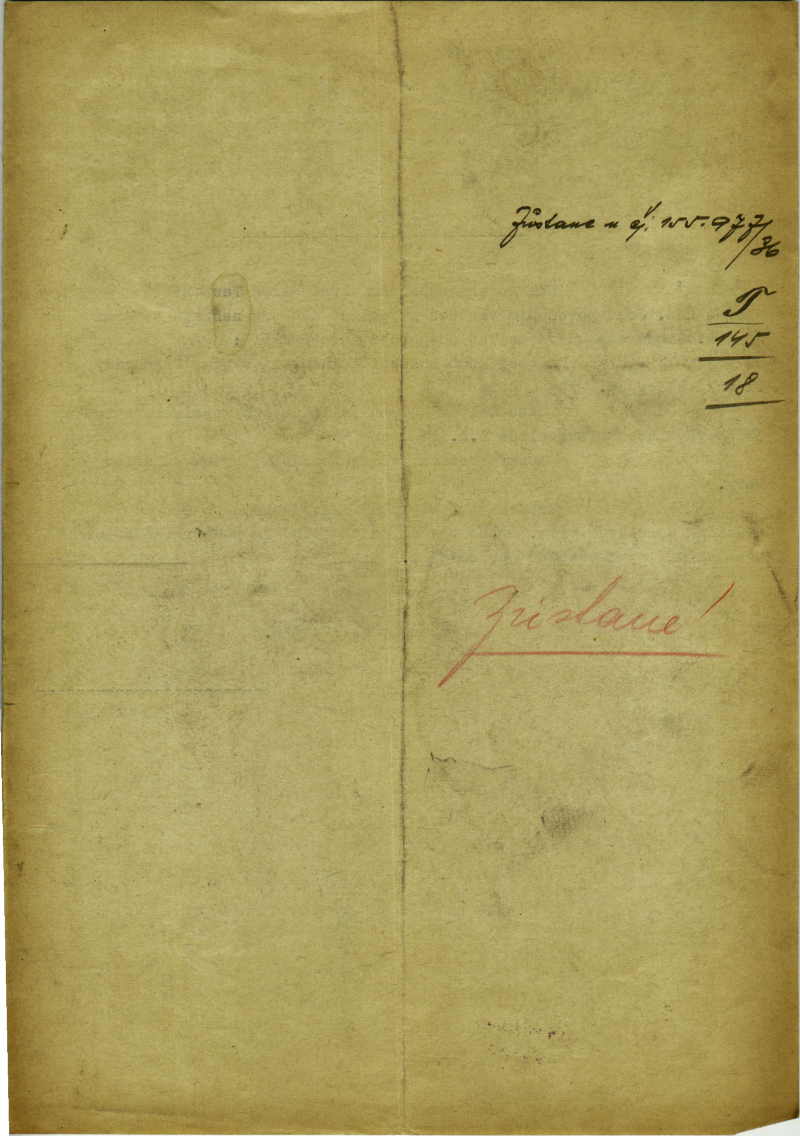 Zůstane u čj. 155.977/36
T
145
18
Zůstane!